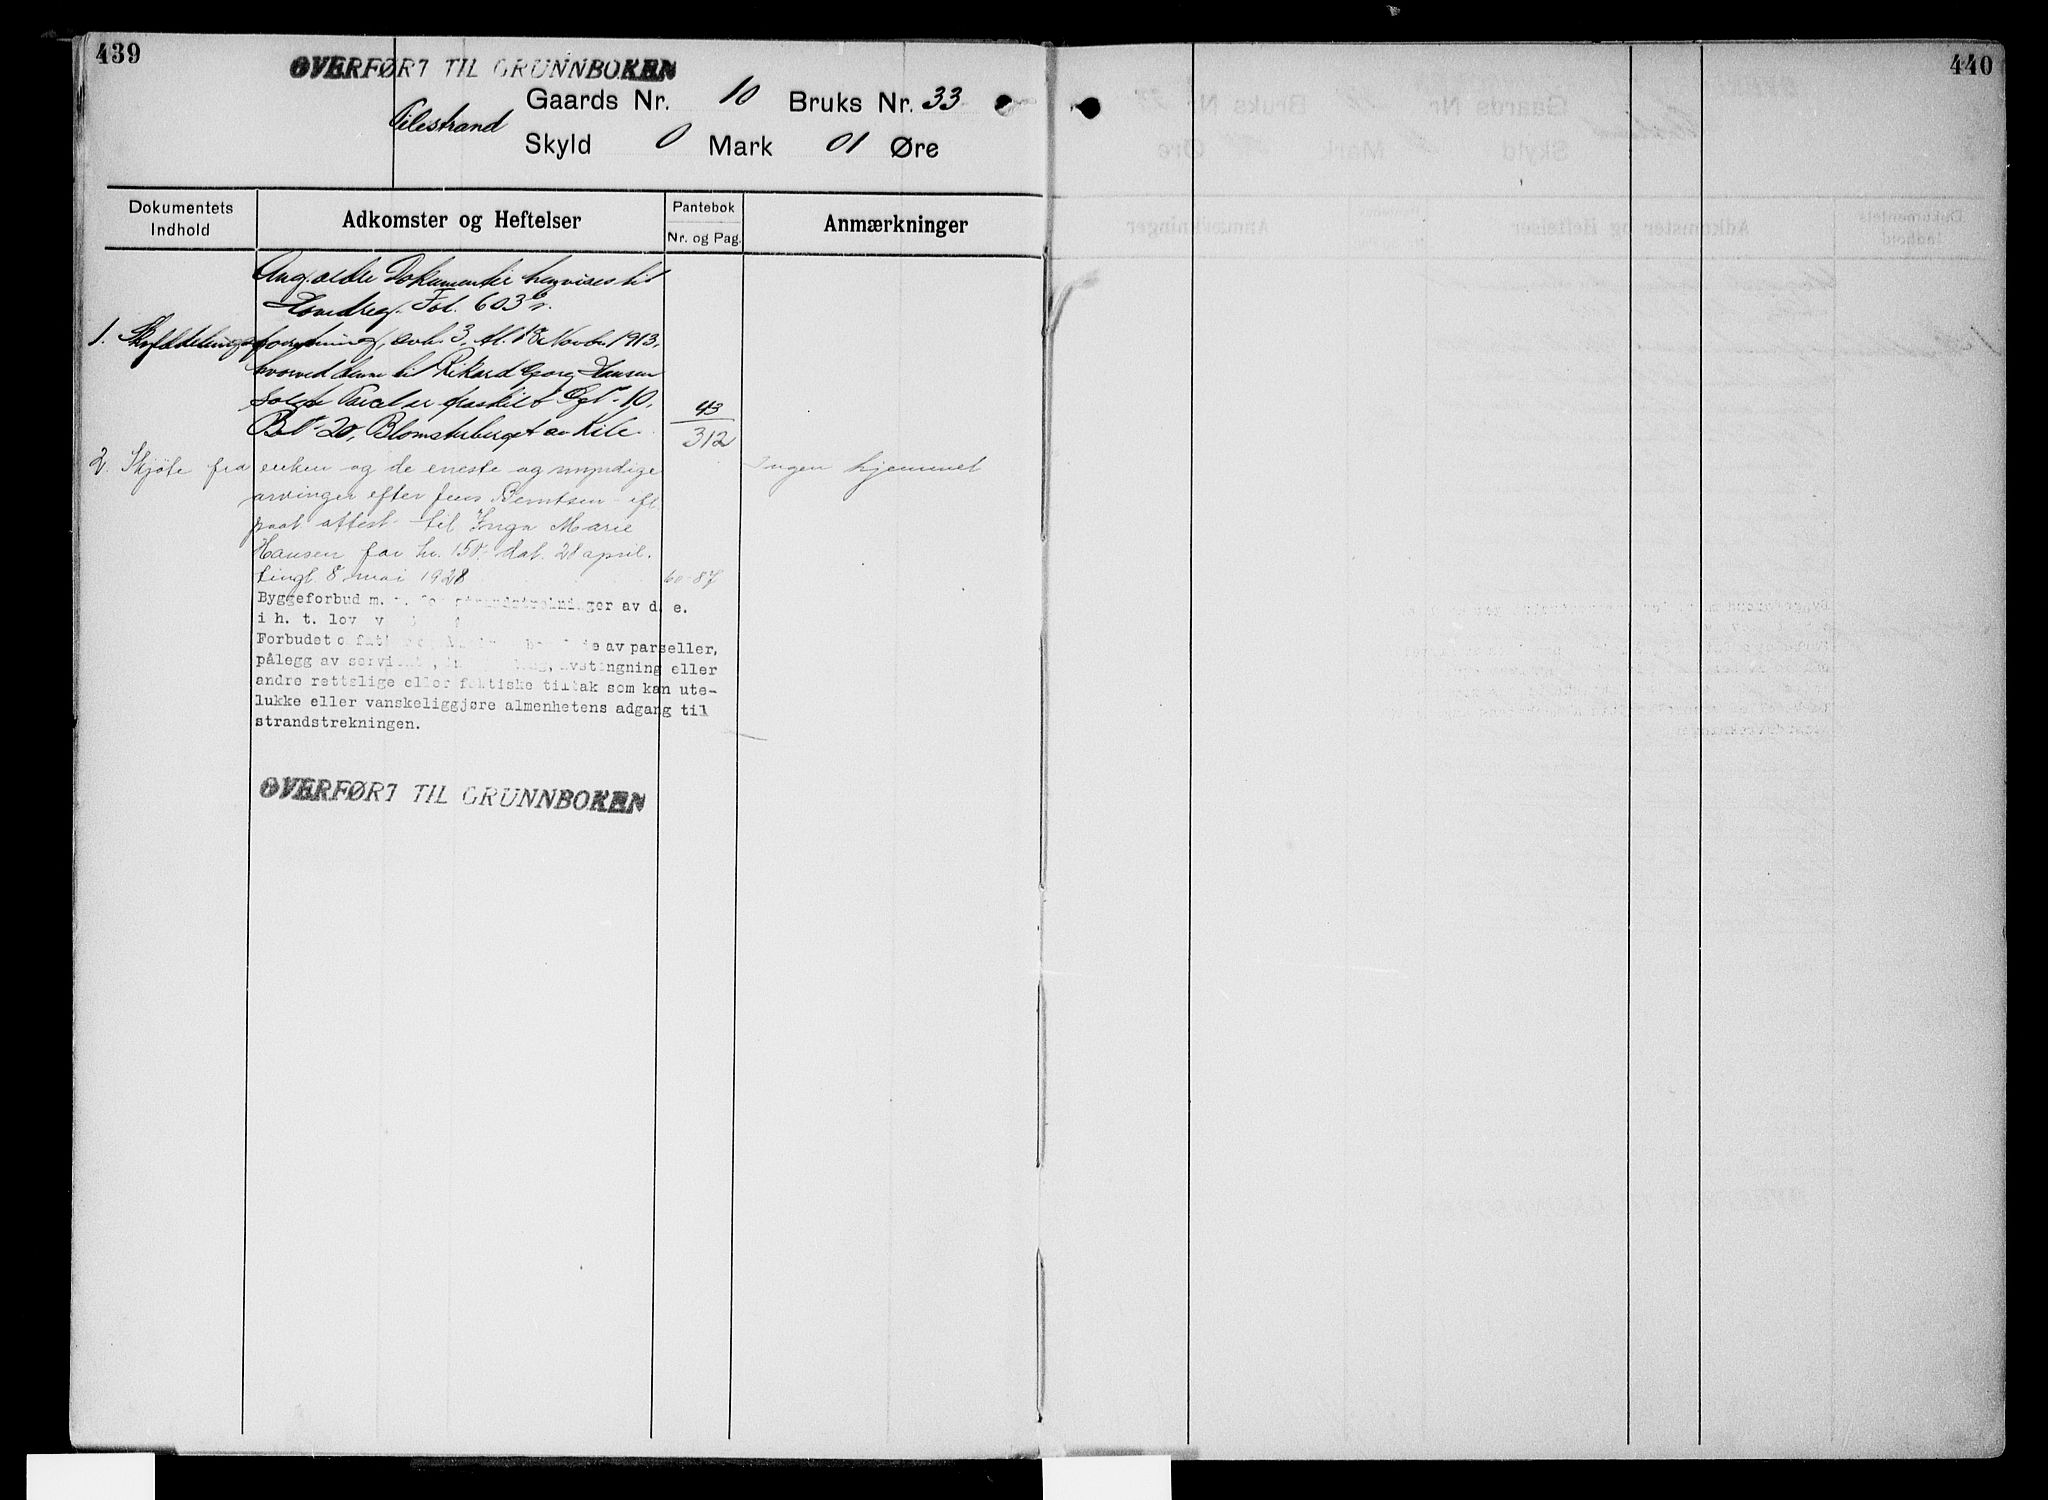 439
OVERFØRT TIL GRUNNBOKEN
Gaards Nr. 10 Bruks Nr. 33
Skyld 0 Mark 01 Øre
Dokumentets Indhold
Adkomster og Heftelser
Pantebok
Nr. og Pag.
Anmærkninger
Ang. ældre Dokumenter henvises til
Hovedreg. Fol. 603
1. Skylddelingsforretning, avh. 3, tl. 18 Novbr. 1913,
hvorved denne til Rikard Georg Hansen
solgte Parcel er fraskilt Gd. 10,
Bd. 20, Blomsterberget av Kile. 43/312
2. Skjöte fra enken og de eneste og myndige
arvinger efter Jens Berntsen efl.
paat. attest til Inga Marie
Hansen for kr. 150 dat. 28 april.
tingl. 8 mai 1928 60-87
Ingen hjemmel
Byggeforbud m. strandstrekninger av d. e.
i h. t. lov
Forbudet av parseller,
pålegg av avstengning eller
andre rettslige eller faktiske tiltak som kan ute-
lukke eller vanskeliggjøre almenhetens adgang til
strandstrekningen.
OVERFØRT TIL GRUNNBOKEN
440